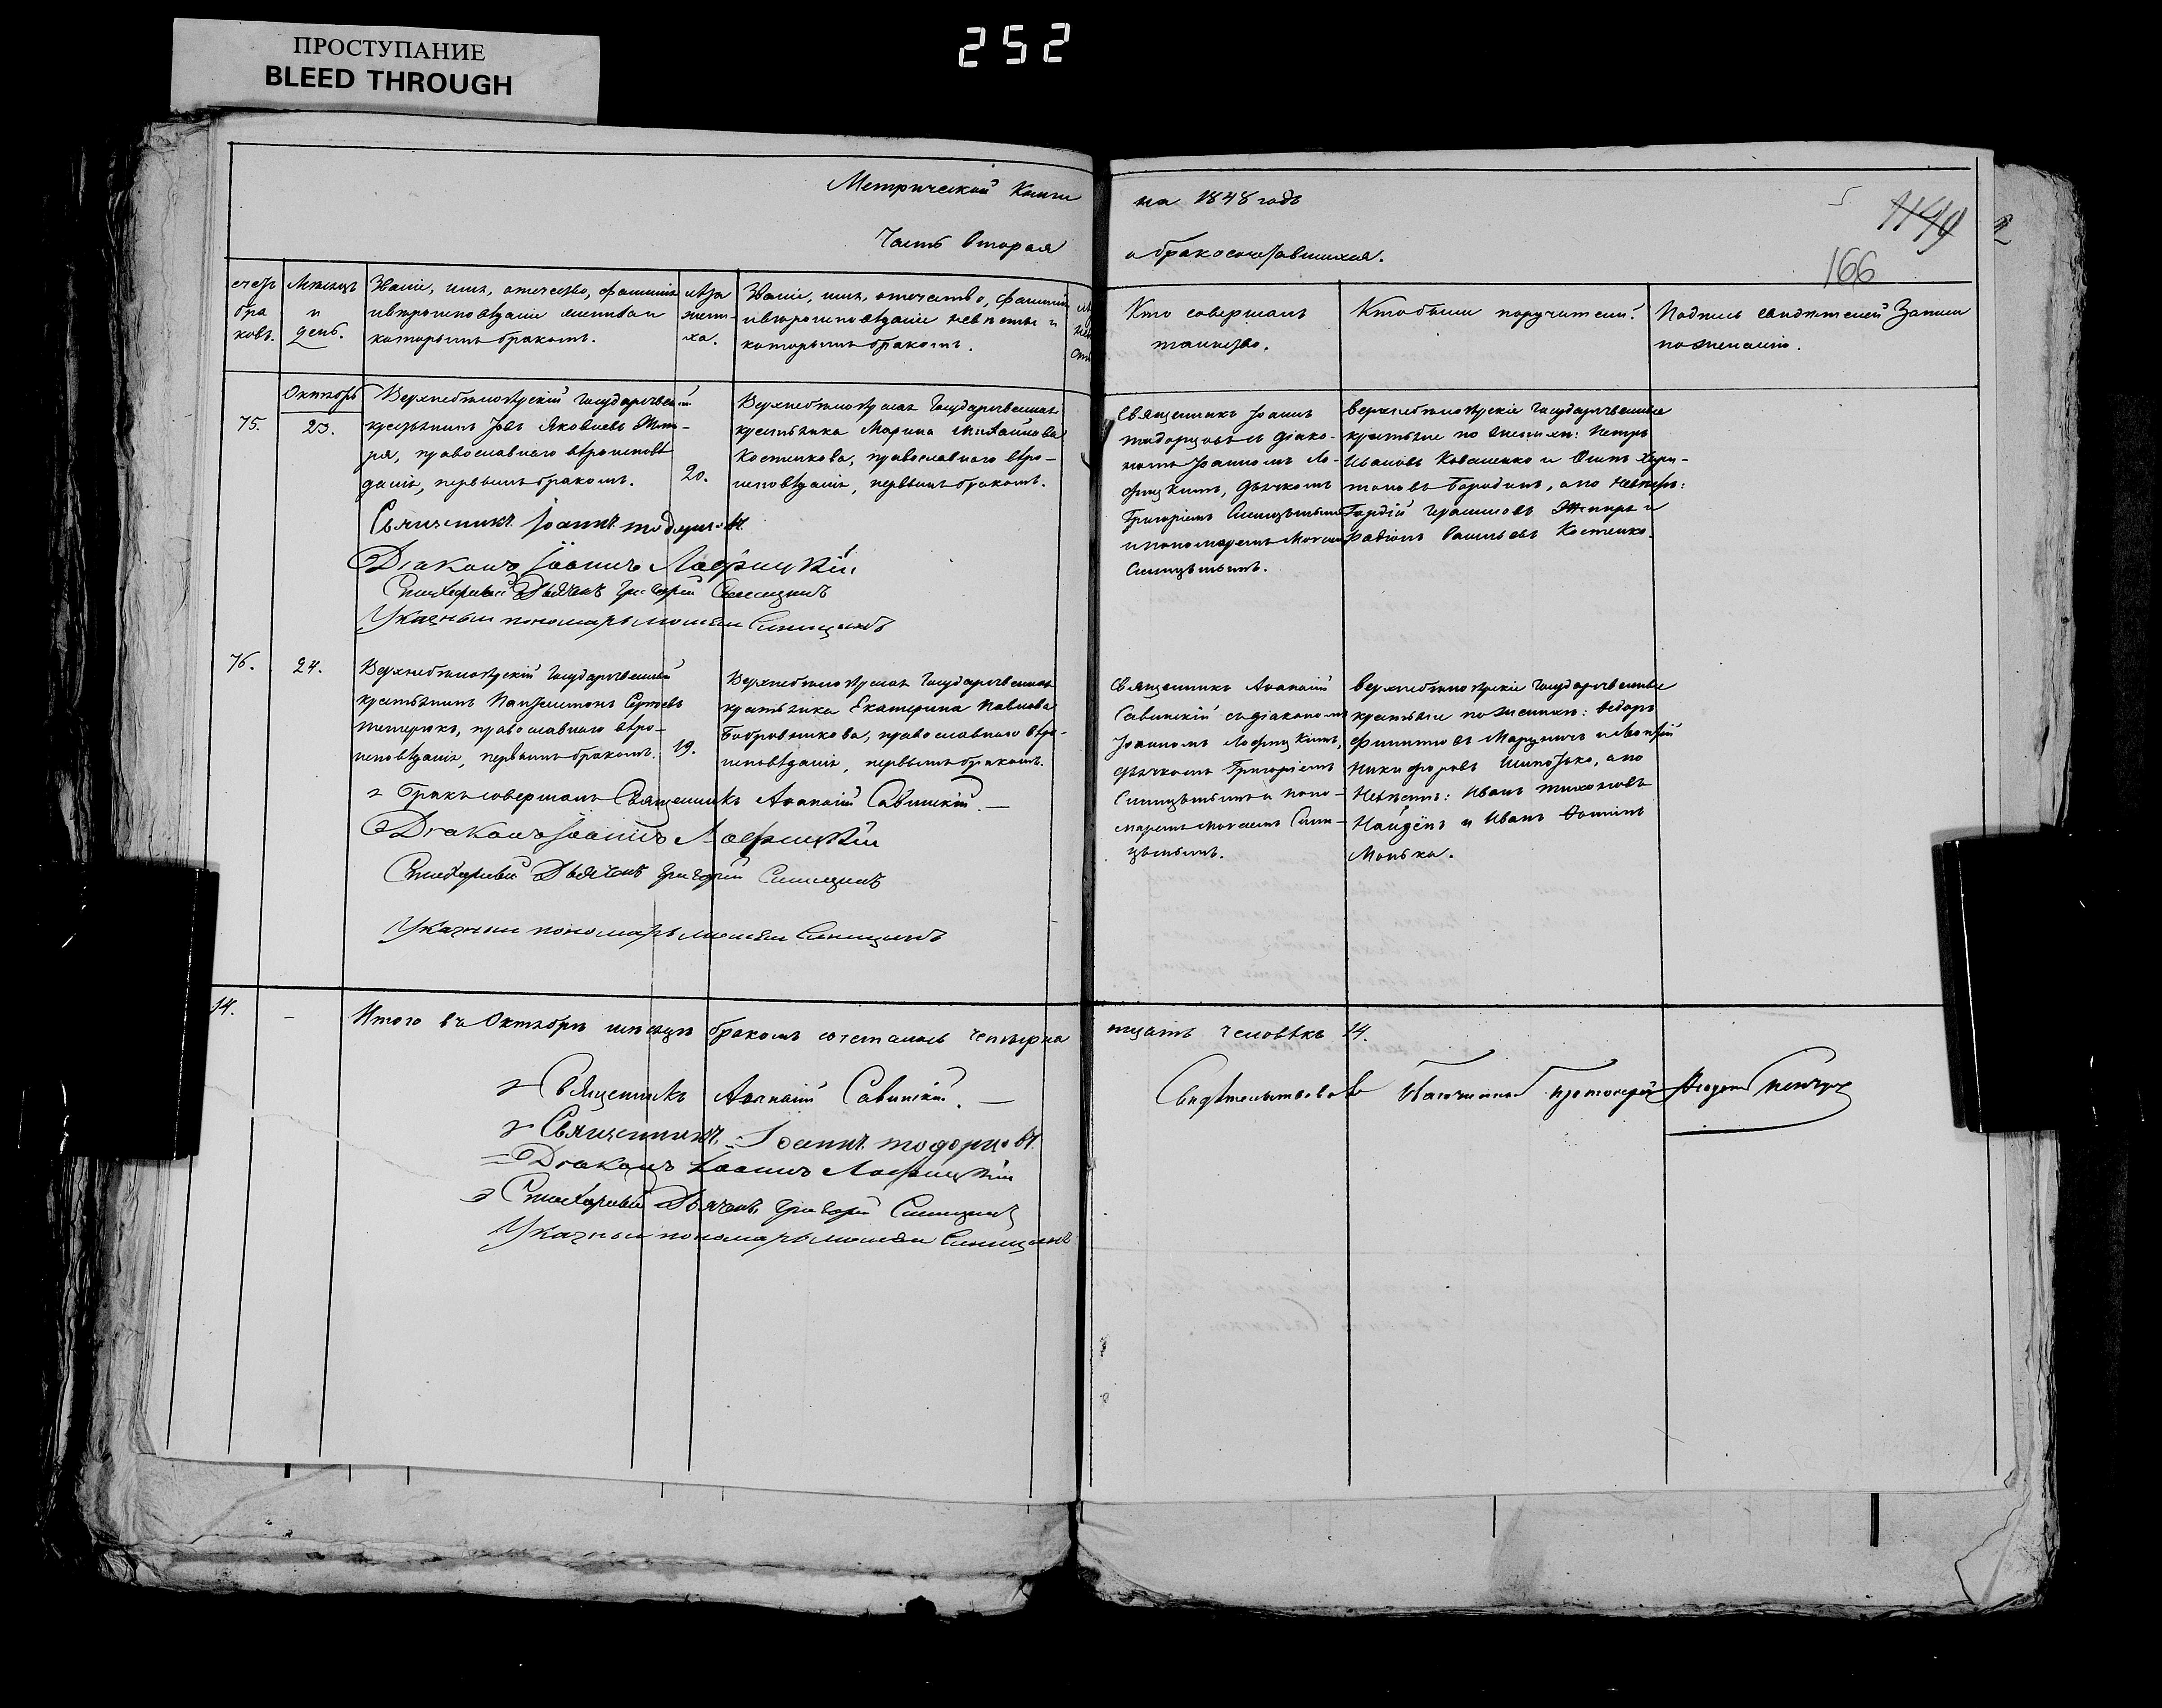 ПРОСТУПАНИЕ
BLEED THROUGH
252
Метрической Книги
на 1848 годъ
1149
166
Часть Вторая
о бракосочетавшихся.
счетъ
бра
ковъ.
Мѣсяцъ
и
день.
Званіе, имя, отечество, фамилія
и вѣроисповѣданіе жениха и
которымъ бракомъ.
лѣта
жени-
ха.
Званіе, имя, отечество, фамилія
и вѣроисповѣданіе невѣсты и
которымъ бракомъ.
Кто совершалъ
таинство.
Кто были поручители.
Подпись свидѣтелей Записи
по желанію.
Октябрь
75.
23.
Верхнебѣлозѣрскій Государственный
крестьянинъ Іовъ Яковлевъ
православнаго вѣроисповѣ
данія, первымъ бракомъ.
20.
Верхнебѣлозѣрская Государственная
крестьянка Марина Михайлова
Костенкова, православнаго вѣро-
исповѣданія, первымъ бракомъ.
Священникъ Іоаннъ
Тодорцовъ съ діако-
номъ Іоанномъ Ло-
фицкимъ, дьячкомъ
Григоріемъ Синицынымъ
и пономаремъ Моисеемъ
Синицынымъ.
Верхнебѣлозѣрскіе Государственные
крестьяне по женихѣ: Петръ
Ивановъ Коваленко и Осипъ Хари-
тоновъ Бородинъ, а по невѣстѣ:
Гордій
Радіонъ Васильевъ Костенко.
Священникъ Іоаннъ Тодорцовъ
Діаконъ Іоаннъ Лофицкій
Стихарный Дьячекъ Григорій Синицынъ
Указный пономарь Моисей Синицынъ
76.
24.
Верхнебѣлозѣрскій Государственный
крестьянинъ Пантелимонъ Сергѣевъ
Тетерюкъ, православнаго вѣро-
исповѣданія, первымъ бракомъ.
19.
Верхнебѣлозѣрская Государственная
крестьянка Екатерина Павлова
Бобровникова, православнаго вѣро-
исповѣданія, первымъ бракомъ.
Священникъ Ананій
Савинскій съ діакономъ
Іоанномъ Лофицкимъ,
дьячкомъ Григоріемъ
Синицынымъ и поно-
маремъ Моисеемъ Сини-
цынымъ.
Верхнебѣлозѣрскіе Государственные
крестьяне по женихѣ: Ѳедоръ
Филиповъ и Леонтій
Никифоровъ Шипотько, а по
Невѣстѣ: Иванъ Тихоновъ
Найдёнъ и Иванъ Ѳоминъ
Монька.
Бракъ совершалъ Священникъ Ананій Савинскій. —
Діаконъ Іоаннъ Лофицкій
Стихарный Дьячекъ Григорій Синицынъ
Указный пономарь Моисей Синицынъ
14.
-
Итого въ Октябрѣ мѣсяцѣ бракомъ сочеталось четырна
тцать человѣкъ 14.
Священникъ Ананій Савинскій. —
Священникъ Іоаннъ Тодорцовъ
Діаконъ Іоаннъ Лофицкій
Стихарный Дьячекъ Григорій Синицынъ
Указный пономарь Моисей Синицынъ
Свидѣтельствовалъ Благочинный Протоіерей